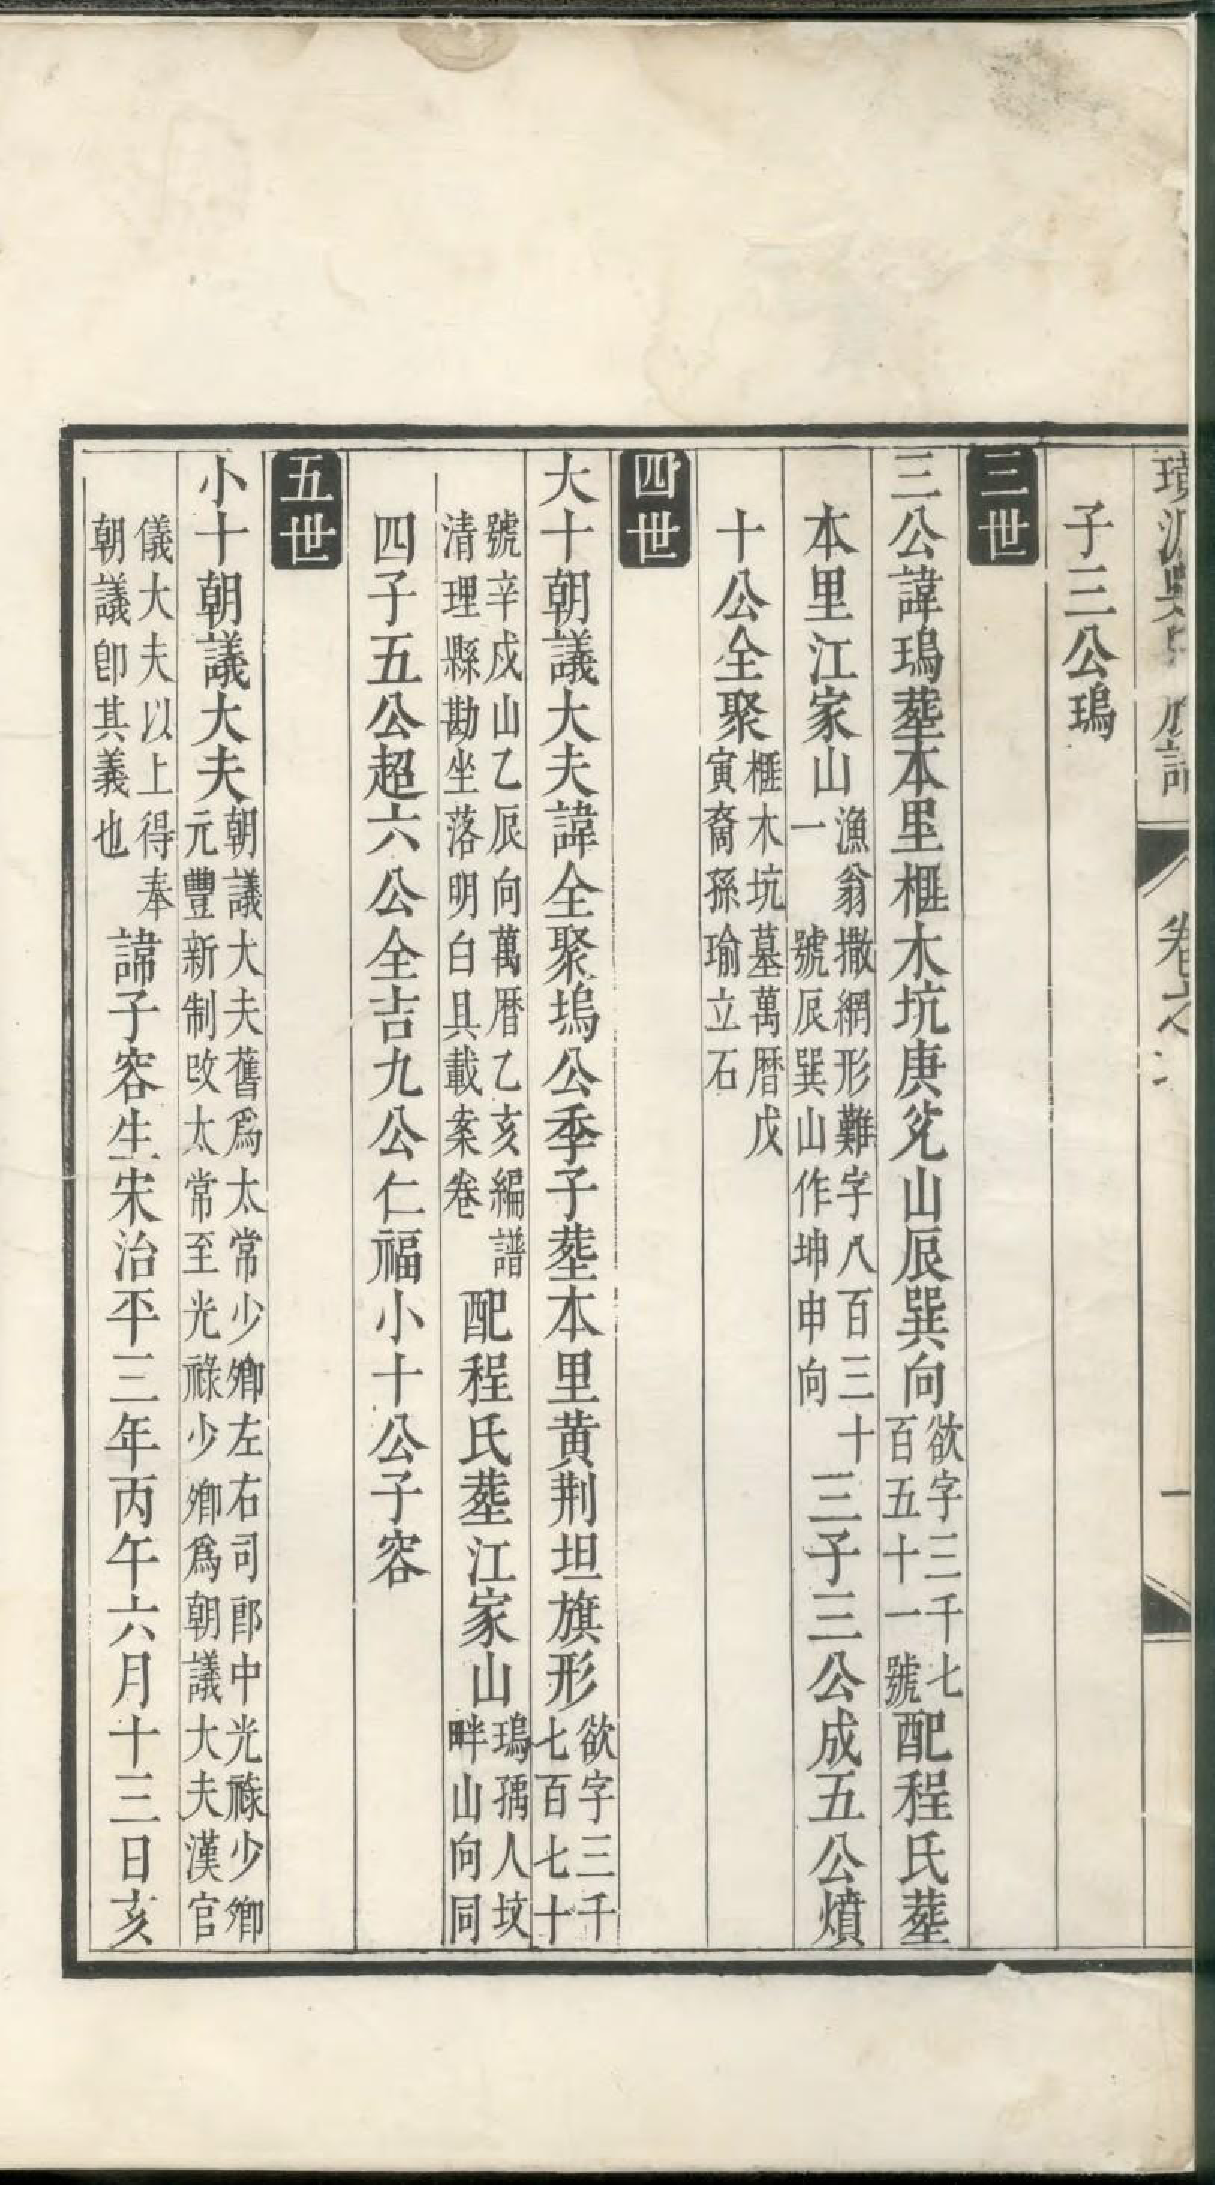 卷之
一
子三公瑦
三世
三公諱瑦塟本里榧木坑庚兊山辰巽向欲字三千七百五十一號配程氏塟
本里江家山漁翁撒網形難字八百三十一號辰巽山作坤申向三子三公成五公燌
十公全聚榧木坑墓萬曆戊寅裔孫瑜立石
四世
大十朝議大夫諱全聚塢公季子塟本里黄荆坦旗形欲字三千七百七十
號辛戍山乙辰向萬曆乙亥編譜清理縣勘坐落明白具載案卷配程氏塟江家山瑦孺人坟畔山向同
四子五公超六公全吉九公仁福小十公子容
五世
小十朝議大夫朝議大夫舊爲太常少卿左右司郎中光祿少卿元豐新制改太常至光祿少卿爲朝議大夫漢官
儀大夫以上得奉朝議卽其義也諱子容生宋治平三年丙午六月十三日亥